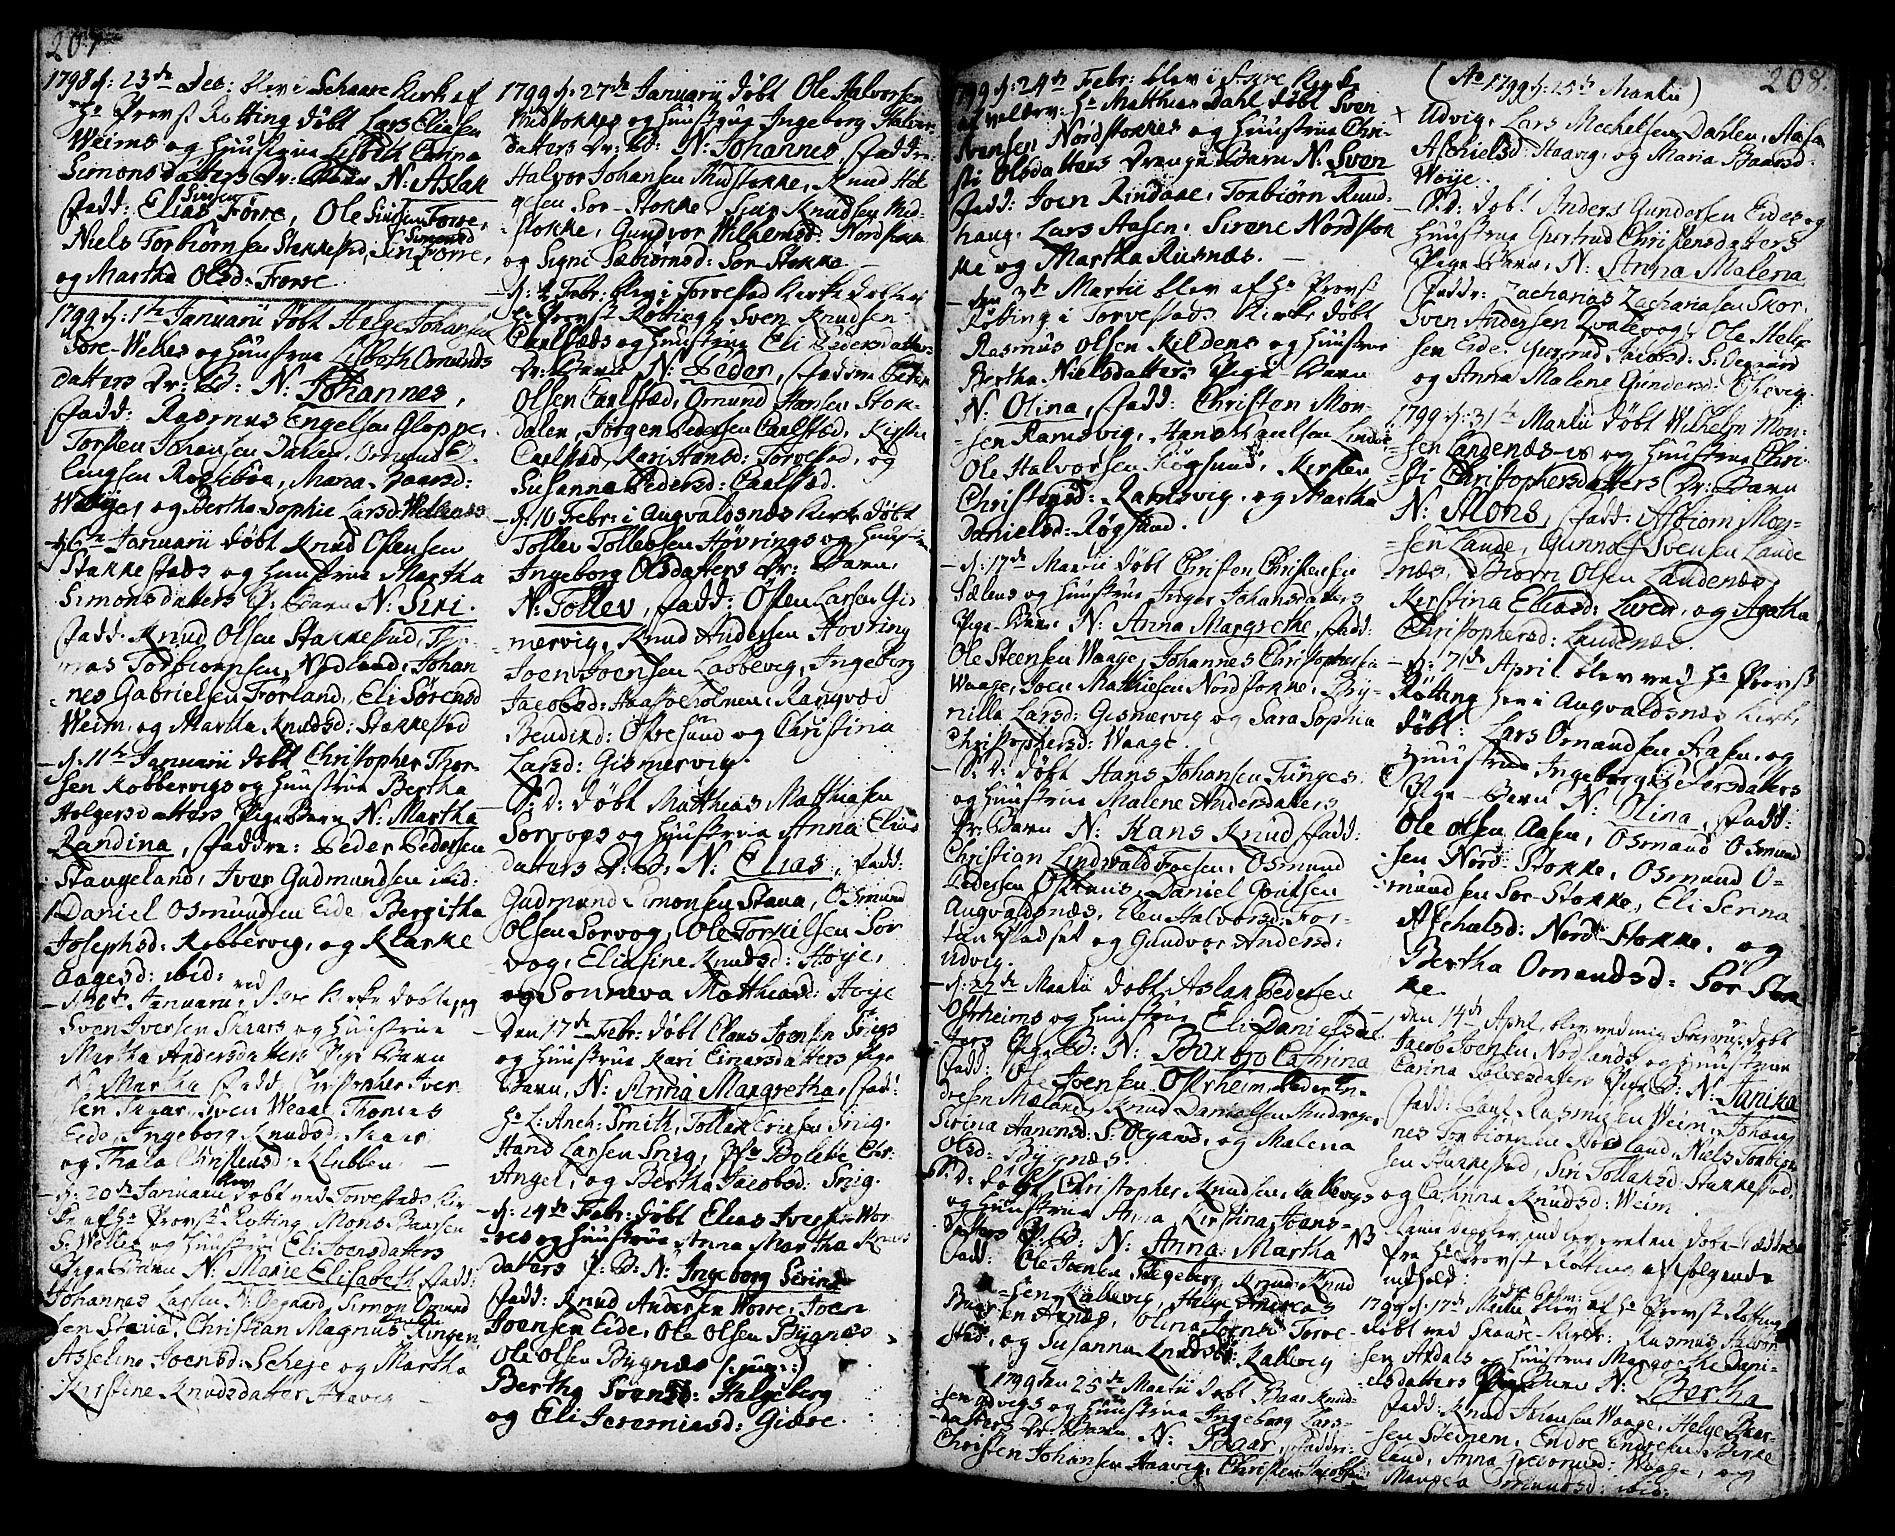 207
1798 d: 23de Dec: blev i Schaare Kirke af
Hr Provst Røtting døbt Lars Eliasen
Weims og Huustrue Lisbeth Carina
Simonsdatters Dr: Barn N: Aslak
Fadd: Elias Siursen Førre, Ole Siursen Førre,
Niels Torbiørnsen Stakkestad, Siri Simonsd Førre,
og Martha Olsd: Førre
1799 d: 1te Januarii døbt Helge Johansen
Søre-Welles og Huustrue Lisbeth Omunds
datters Dr: B: N: Johannes,
Fadd: Rasmus Engelsen Gloppe,
Torsten Johansen Dahlen, Omund El-
lingsen Røgsebøe, Maria Baarsd:
Woije, og Bertha Sophie Larsd: Wellenæs
d: 6te Januarii døbt Knud Olsen
Stakkestads og Huustrue Martha
Simonsdatters P: Barn N: Siri.
Fadd: Knud Olsen Stakkestad, Tho-
mas Torbiørnsen Nodland, Johan
nes Gabrielsen Førland, Eli Sørensd
Weim, og Martha Knudsd: Stakkestad
d: 11te Januarii døbt Christopher Thor-
sen Kobbervigs og Huustrue Bertha
Holgersdatters Pige Barn N: Martha
Randina, Faddre: Peder Pedersen
Stangeland, Iver Gudmundsen ibid:
Daniel Osmundsen Eide, Bergitha
Josephsd: Kobbervig, og Klarke
Aagesd: ibid:
Januarii ved Kirke døbt
Sven Iversen Skaars og Huustrue
Martha Andersdatters Pige Barn
N: Martha Fadd: Christopher Iver-
sen Skaar, Sven Weaae, Thomas
Eide, Ingeborg Knudsd: Skaar,
og Thala Christensd: Klubben.
d: 20de Januarii blev døbt ved Torvestads Kir-
ke af Hr Provst Røtting, Mons Baarsen
S: Welles og Huustrue Eli Joensdatters
Pige Barn N: Marie Elisabeth Fadd:
Johannes Larsen N: Øegaard, Simon Omund
sen Staua, Christian Magnus Ringen
Asseline Joensd: Scheje og Martha
Kirstine Knudsdatter Haavig
1799 d: 27de Januarii døbt Ole Halvorsen
Midstokkes og Huustrue Ingeborg Halvor
datters Dr: B: N: Johannes, Faddre
Halvor Johansen Midstokke, Knud Hel
gesen Sør-Stokke, Siur Knudsen Mid-
stokke, Gundvor Wilhelmsd: Nordstokke
og Signe Sæbiørnsd: Sør Stokke.
d: Febr: blev i Torvestad Kirke døbt af
Hr Provst Røtting, Sven Knudsen
Carlstæds og Huustrue Eli Pedersdatter
Dr: Barn N: Peder, Faddre Peder
Olsen Carlstæd, Omund Hansen Stok-
dalen, Jørgen Pedersen Carlstad, Kirstie
Carlstæd, Kari Hansd: Torvestad, og
Susanna Pedersd: Carlstad.
d: 10 Febr: i Augvaldsnæs Kirke døbt
Tollev Tollevsen Høvrings og Huustrue
Ingeborg Olsdatters Dr: Barn,
N: Tollev, Fadd: Osten Larsen Gis
mervig, Knud Andersen Hovring
Joen Joensen Labbevig, Ingeborg
Jacobsd: Haasteholmen, Rangvæd
Bendixd: Økresund og Christina
Larsd: Gismervig.
E: D: døbt Matthias Matthiasen
Sørvogs og Huustrue Anna Elias
datters D: B: N: Elias, Fadd:
Gudmund Simonsen Staua, Osmund
Olsen Sørvog, Ole Torkilsen Sør
vog, Eliasine Knudsd: Høije,
og Sonneva Matthiasd: Høije
Den 17de Febr: døbt Claus Joensen Snigs
og Huustrue Kari Einarsdatters Pige
Barn, N: Anna Margretha, Fadd:
Hr L: Anch: Smith, Tollak Ericsen Snig,
Hans Larsen Snig, Bolette Chr:
Angel, og Bertha Jacobsd: Snig.
d: 24de Febr: døbt Elias Iversen Wor-
res og Huustrue Anna Martha Knuds
datters P: B: N: Ingeborg Serine
Fadd: Knud Andersen Worre, Joen
Joensen Eide, Ole Olsen Bygnæs
Ole Olsen Bygnæs (jun:)
Bertha Svensd: Helgeberg
og Eli Jeremiasd: Giøre.
1799 d: 24de Febr: blev i Kirke
af Hr Matthias Dahl døbt Sven
Svensen Nordstokkes og Huustrue Chri-
sti Olsdatters Drenge Barn N: Sven
Fadd: Joen Rindane, Torbiørn Rund
haug, Lars Aasen, Sirene Nordstok
ke og Martha Rusnæs.
den 3de Martii blev af Hr Provst
Røtting i Torvestads Kirke døbt
Rasmus Olsen Kildens og Huustrue
Bertha Nielsdatters Pige Barn
N: Olina, Fadd: Christen Mon-
sen Ramsvig, Hans Paulsen Lindøe
Ole Halvorsen Røgsund, Kirsten
Christophd: Ramsvig, og Martha
Danielsd: Røgsund.
d: 17de Martii døbt Christen Christensen
Sælens og Huustrue Inger Johansdatters
Pige Barn N: Anna Margrethe, Fadd:
Ole Steensen Waage, Johannes Christophersen
Waage, Joen Matthiesen Nordstokke, By-
nilla Larsd: Gismervig og Sara Sophia
Christophersd: Waage.
E: D: døbt Hans Johansen Tunges
og Huustrue Malene Andersdatters
Dr: Barn N: Hans Knud Fadd:
Christian Lindvald Foesen, Osmund
Pedersen Ostnus, Daniel Goutsen
Augvaldsnæs, Elen Halvorsd: For-
tun Pladset og Gundvor Andersd:
Udvig.
d: 22de Martii døbt Aslak Pedersen
Østrheims og Huustrue Eli Danielsdat
ters Pige B: N: Barbro Cathrina
Fadd: Ole Joensen Østrheim, Peder En-
dresen Meland, Knud Danielsen
Sirina Hansensd: S: Øegaard, og Malena
Olsd: Bygnæs.
E: D: døbt Christopher Knudsen Kallevigs
og Huustrue Anna Kirstina Joens-
datters P: B: N: Anna Martha NB
Fadd: Ole Joensen Helgeberg, Knud Knud
sen Kallevig, Helge Andreas
Baarsen Aenæs, Olina Torve-
stad, og Susanna Knudsd: Kallevig
1799 den 25de Martii døbt Baar Knud
sen Udvigs og Huustrue Ingeborg Lars-
datters Dr: Barn N: Baar, Faddre:
Christen Johansen Haavig, Christen Jacobsen
208.
(Ao 1799 d: 25de Martii)
Udvig, Lars Mechelsen Dahlen, Aasa
Aschielsd: Haavig, og Maria Baarsd:
Woije.
E: D: døbt Anders Gundersen Eides og
Huustrue Gertrud Christensdatters
Pige-Barn, N: Anna Malena
Faddr: Zacharias Zachariasen Skor,
Sven Andersen Qvalevog, Ole Helge
sen Eide, Gertrud Jacobsd: S: Øegaard
og Anna Malene Gundersd: Eikevig.
1799 d: 31te Martii døbt Wilhelm Mon-
sen Landenæs-es og Huustrue Chri-
sti Christophersdatters Dr: Barn
N: Mons, Fadd: Asbiørn Mog-
sen Lande, Gunnal Svensen Lande
næs, Biørn Olsen Landenæs,
Kirstina Eliasd: Liven, og Agatha
Christophersd: Landenæs.
d: 7de April blev ved Hr Provst
Røtting her i Augvaldsnæs Kirke
døbt: Lars Omundsen Aasen, og
Huustrue Ingeborg Pedersdatters
Pige-Barn N: Olina, Fadd:
Ole Olsen Aasen, Osmund Osmund
sen Nord-Stokke, Osmund O-
mundsen Sør-Stokke, Eli Serina
Aschielsd: Nord-Stokke, og
Bertha Omundsd: Sør Stok
ke.
den 14de April, blev ved mig døbt
Jacob Joensen Nodlands og Huustrue
Carina Tolvesdatters Pige B: N: Janika
Fadd: Paul Rasmusen Weim, Johan
nes Torbiørnsen Nodland, Niels Torbiørn
sen Stakkestad, Siri Tollaksd: Stakkestad,
og Cathrina Knudsd: Weim.
indleveret en Døbe-Seddel
fra Hr Provst Røtting af følgende
indhold:
1799 d: 17de Martii blev af Hr Provst Røtting
døbt ved Skaare-Kirke: Rasmus Halvor
sen Axdals og Huustrue Margrethe Dani-
elsdatters Pige Barn N: Bertha
Fadd: Knud Johansen Waage, Helge Baar-
sen Steinem, Endre Endresen Birke
land, Anna Waage, og
ibid: